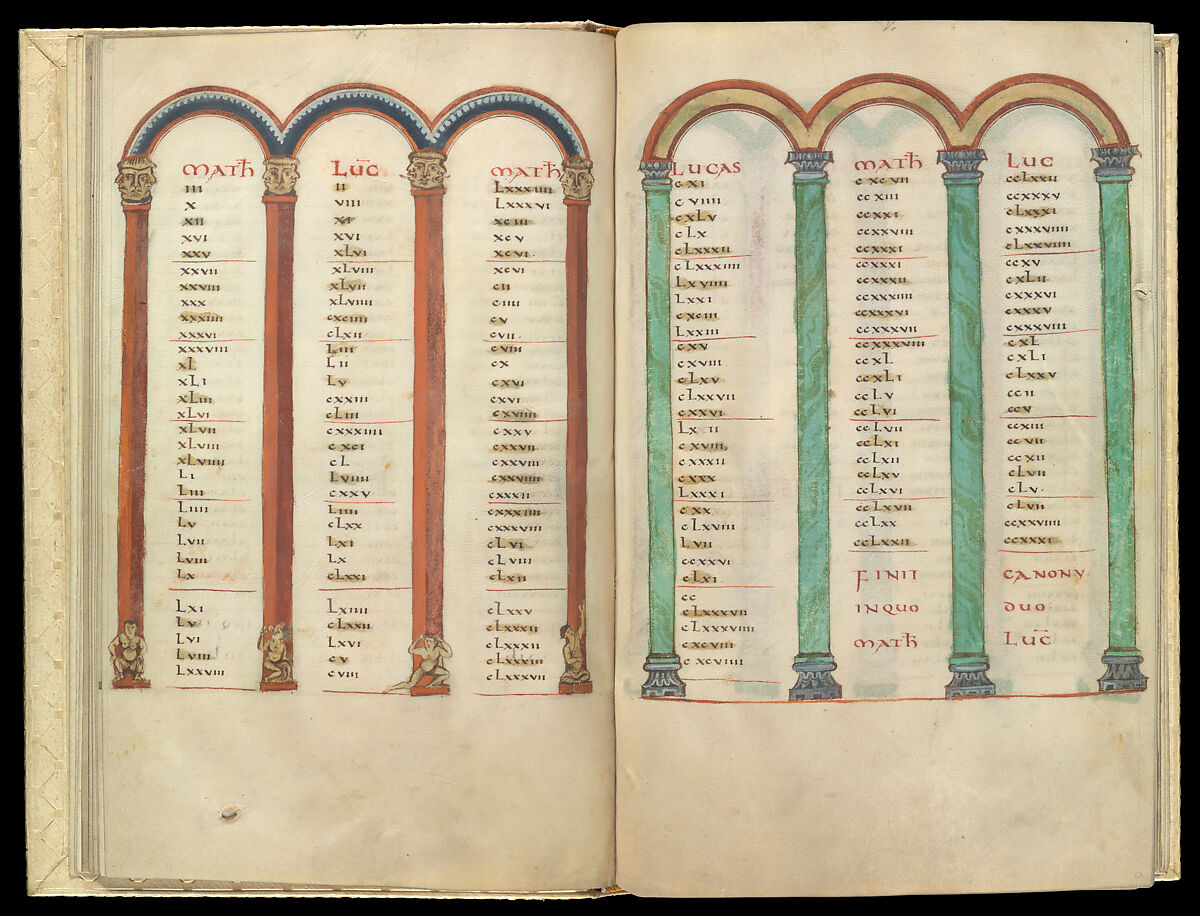 MATH
III
X
XII
XVI
XXV
XXVII
XXVIII
XXX
XXXIIII
XXXVI
XXXVIII
XL
XLI
XLIII
XLVI
XLVII
XLVIII
XLVIIII
LI
LIII
LIIII
LV
LVII
LVIII
LX
LXI
LV
LVI
LVIII
LXXVIII
LUC
II
VIII
XI
XVI
XLVI
XLVIII
XLVII
XLVIIII
CXCIIII
CLXII
LIII
LII
LV
CXXIII
CLIII
CXXXIIII
CXCI
CL
LVIIII
CXXV
LIIII
CLXX
LXI
LX
CLXXI
LXIIII
CLXXII
LXVI
CV
CVIII
MATH
LXXXIIII
LXXXVI
XCIII
XCV
XCVI.
XCVI
CII
CIIII
CV
CVII.
CVIII
CX
CXVI
CXVI
CXVIIII
CXXV
CXXVII
CXXVIII
CXXVIIII
CXXXII
CXXXIIII
CXXXVIIII
CLVI
CLVIII
CLXII
CLXXV
CLXXXII
CLXXXII
CLXXXIIII
CLXXXVII
LUCAS
CXI
CVIIII
CXLV
CLX
CLXXXII
CLXXXIIII
LXVIIII
LXXI
CXCIII
LXXIII
CXV
CXVIII
CLXV
CLXXVII
CXXVI
LXII
CXVIII
CXXXII
CXXX
LXXXI
CXX
CLXVIII
LVII
CCXXVI
CLXI
CC
CLXXXVII
CLXXXVIIII
CXCVIII
CXCVIIII
MATH
CXCVII
CCXIII
CCXXI
CCXXVIII
CCXXXI
CCXXXI
CCXXXII
CCXXXIIII
CCXXXVI
CCXXXVII
CCXXXVIII
CCXL
CCXLI
CCLV
CCLVI
CCLVII
CCLXI
CCLXII
CCLXV
CCLXVI
CCLXVII
CCLXX
CCLXXII
FINIT
INQUO
MATH
LUC
CCLXXII
CCXXXV
CLXXXI
CXXXVIIII
CLXXVIIII
CCXV
CXLII
CXXXVI
CXXXV
CXXXVIII
CXL
CXLI
CLXXV
CCII
CCV
CCXIII
CCVII
CCXII
CLVII
CLV.
CLVII
CCXXVIIII
CCXXXI
CANONV
DUO
LUC